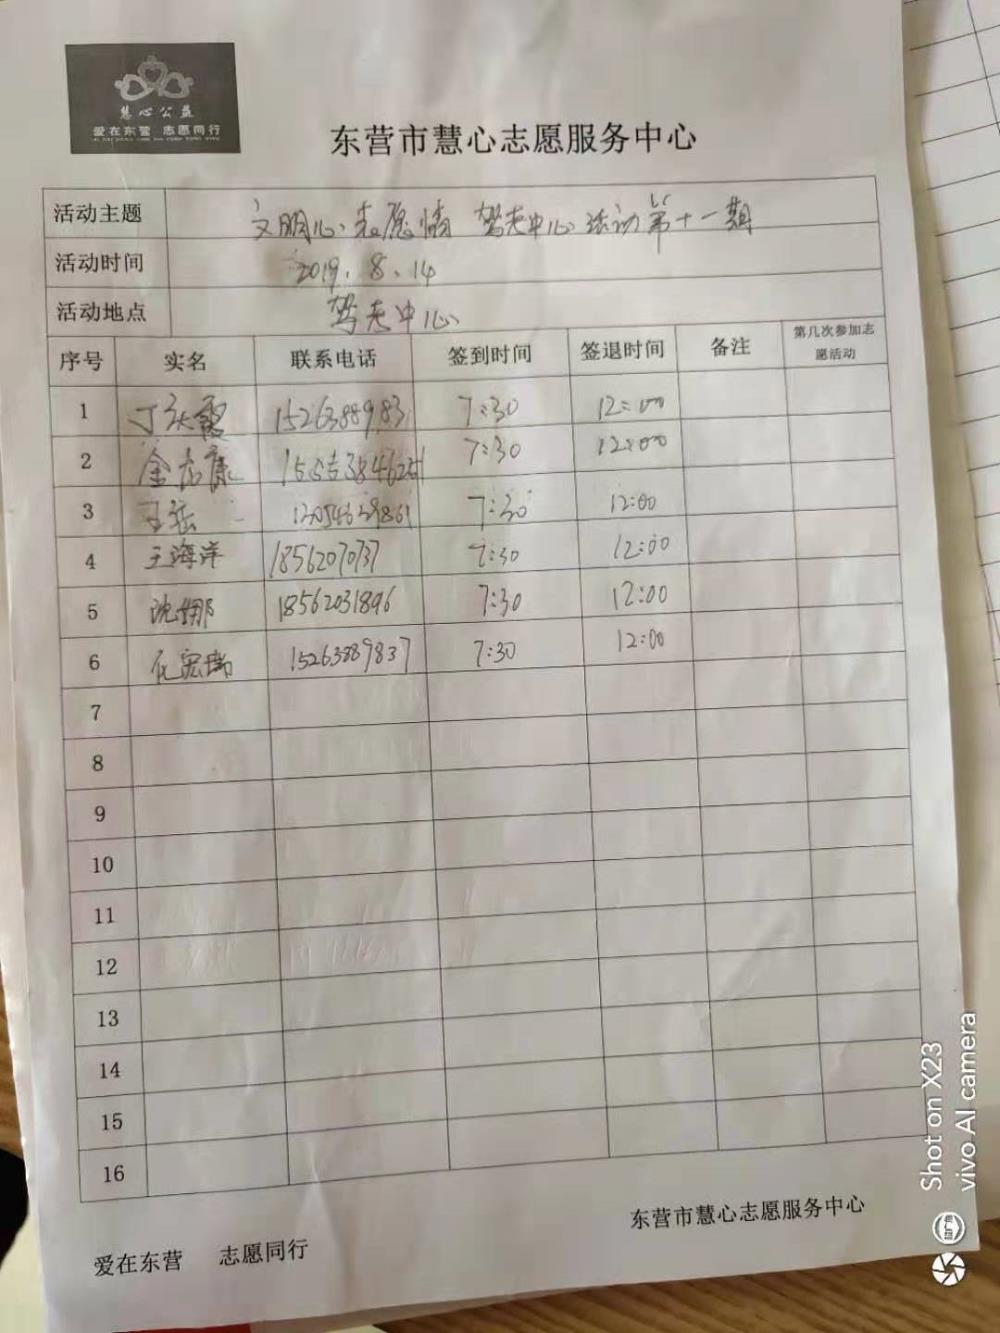 慧心公益
爱在东营 志愿同行
东营市慧心志愿服务中心
活动主题 文明心 志愿情 驾考中心活动第十一期
活动时间 2019.8.14
活动地点 驾考中心
序号 实名 联系电话 签到时间 签退时间 备注 第几次参加志愿活动
1 丁庆霞 15263889831 7:30 12:00
2 金志康 7:30 12:00
3 7:30 12:00
4 王海洋 18562070737 7:30 12:00
5 沈娜 18562031896 7:30 12:00
6 15263889837 7:30 12:00
7
8
9
10
11
12
13
14
15
16
东营市慧心志愿服务中心
爱在东营 志愿同行
Shot on X23
vivo AI camera